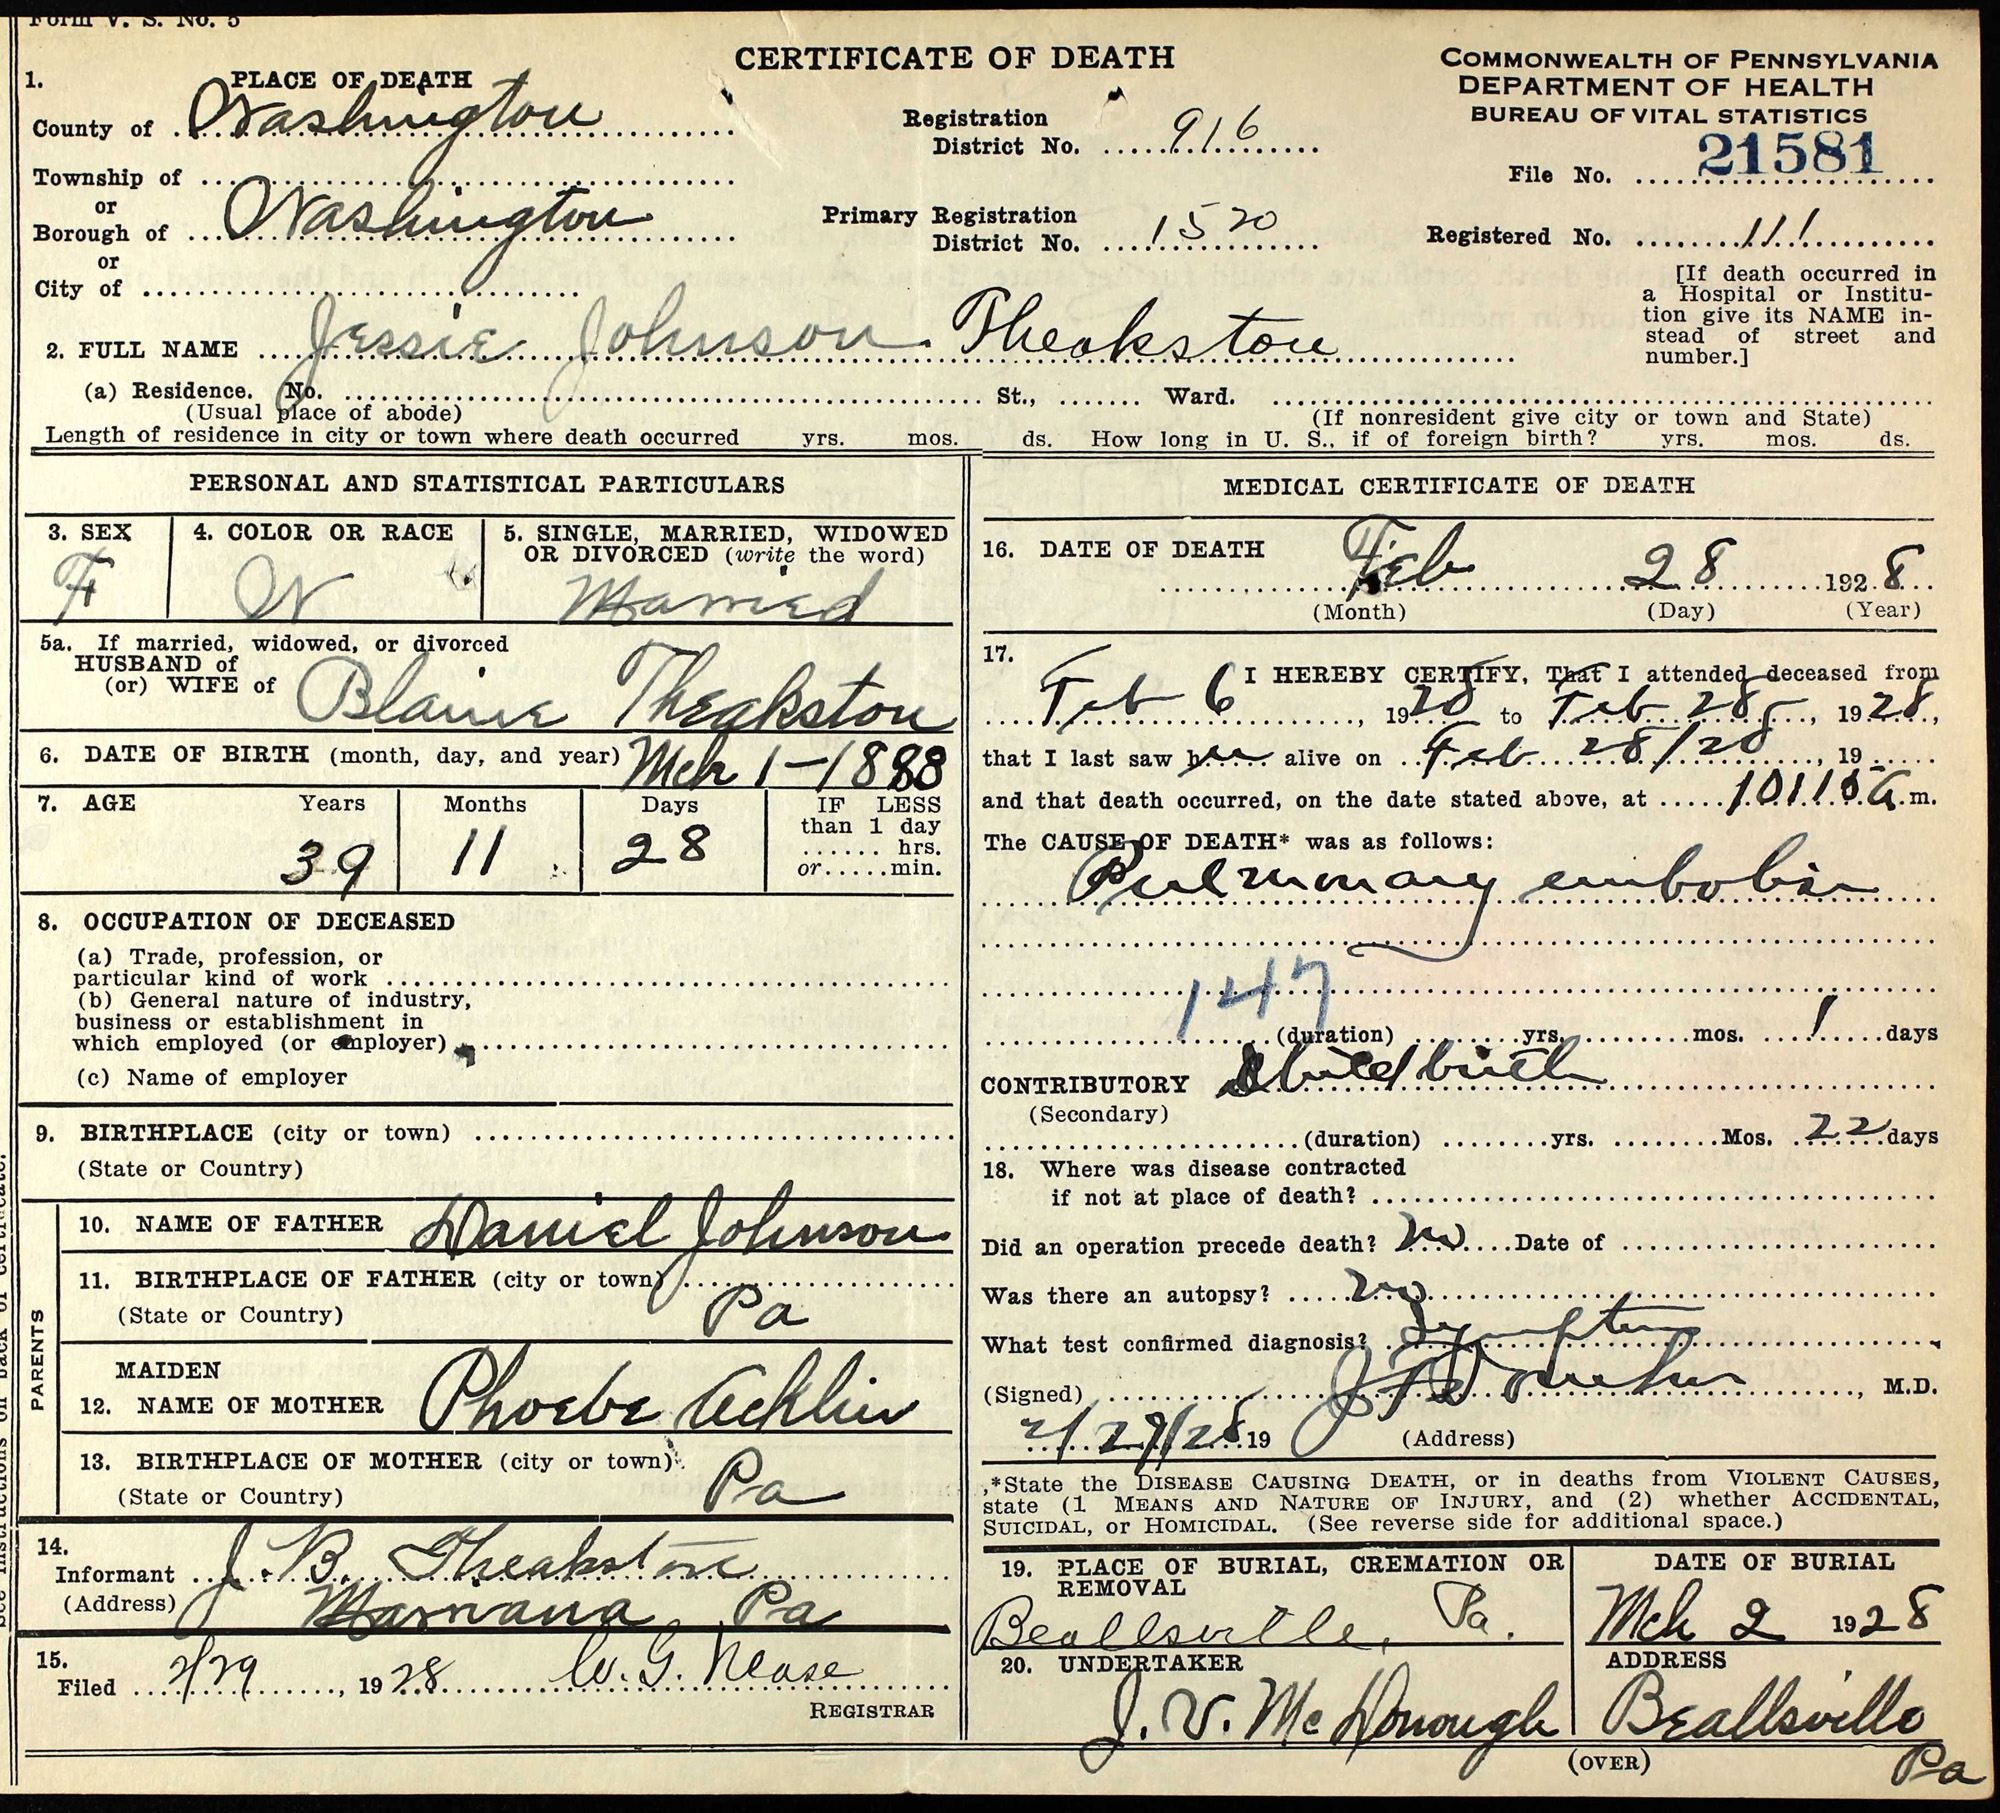 Form V. S. No. 5
CERTIFICATE OF DEATH
COMMONWEALTH OF PENNSYLVANIA
DEPARTMENT OF HEALTH
BUREAU OF VITAL STATISTICS
1. PLACE OF DEATH
County of Washington
Registration District No. 916
File No. 21581
Township of
or
Borough of Washington
Primary Registration District No. 1520
Registered No. 111
or
City of
[If death occurred in
a Hospital or Institu-
tion give its NAME in-
stead of street and
number.]
2. FULL NAME Jessie Johnson Theakston
(a) Residence. No. St., Ward.
(Usual place of abode) (If nonresident give city or town and State)
Length of residence in city or town where death occurred yrs. mos. ds. How long in U. S., if of foreign birth? yrs. mos. ds.
PERSONAL AND STATISTICAL PARTICULARS
3. SEX
F
4. COLOR OR RACE
W
5. SINGLE, MARRIED, WIDOWED
OR DIVORCED (write the word)
Married
5a. If married, widowed, or divorced
HUSBAND of
(or) WIFE of Blaine Theakston
6. DATE OF BIRTH (month, day, and year) Mch 1-1888
7. AGE Years Months Days IF LESS
than 1 day
hrs.
or min.
39 11 28
8. OCCUPATION OF DECEASED
(a) Trade, profession, or
particular kind of work
(b) General nature of industry,
business or establishment in
which employed (or employer)
(c) Name of employer
9. BIRTHPLACE (city or town)
(State or Country)
PARENTS
10. NAME OF FATHER Daniel Johnson
11. BIRTHPLACE OF FATHER (city or town)
(State or Country) Pa
MAIDEN
12. NAME OF MOTHER Phoebe Acklin
13. BIRTHPLACE OF MOTHER (city or town)
(State or Country) Pa
14.
Informant J. B. Theakston
(Address) Marianna Pa
15.
Filed 2/29, 1928 W. G. Nease
REGISTRAR
MEDICAL CERTIFICATE OF DEATH
16. DATE OF DEATH
Feb 28 1928
(Month) (Day) (Year)
17.
I HEREBY CERTIFY, That I attended deceased from
Feb 6, 1928 to Feb 28, 1928,
that I last saw her alive on Feb 28/28, 19
and that death occurred, on the date stated above, at A.m.
The CAUSE OF DEATH* was as follows:
Pulmonary embolism
147
(duration) yrs. mos. 1 days
CONTRIBUTORY Childbirth
(Secondary)
(duration) yrs. Mos. 22 days
18. Where was disease contracted
if not at place of death?
Did an operation precede death? no Date of
Was there an autopsy? no
What test confirmed diagnosis? Symptoms
(Signed) , M.D.
2/29/28 19 (Address)
*State the DISEASE CAUSING DEATH, or in deaths from VIOLENT CAUSES,
state (1 MEANS AND NATURE OF INJURY, and (2) whether ACCIDENTAL,
SUICIDAL, or HOMICIDAL. (See reverse side for additional space.)
19. PLACE OF BURIAL, CREMATION OR
REMOVAL
Beallsville, Pa.
DATE OF BURIAL
Mch 2 1928
20. UNDERTAKER
J. V. McDonough
ADDRESS
Beallsville
Pa
(OVER)
See instructions on back of certificate.